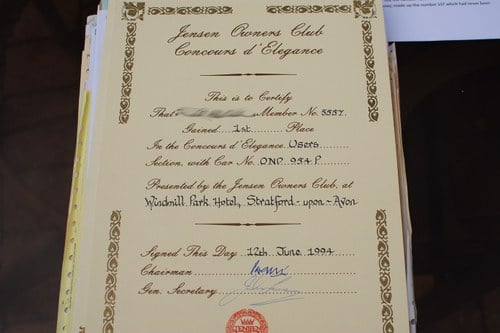 owner, made up the number 557 which had never been
Jensen Owners Club
Concours d'Elegance
This is to Certify
That Member No. 5557.
Gained 1st Place
In the Concours d'Elegance Users
Section, with Car No. OND 954 P
Presented by the Jensen Owners Club, at
Windmill Park Hotel, Stratford-upon-Avon
Signed This Day 12th June 1994
Chairman
Gen. Secretary
JENSEN